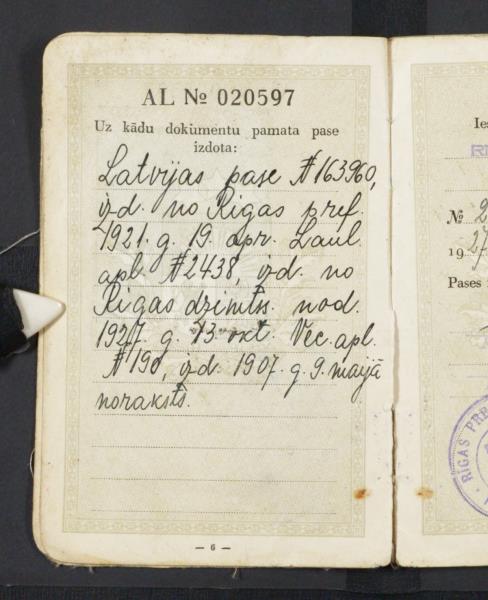 AL № 020597
Uz kādu dokumentu pamata pase
izdota:
Latvijas pase № 163960,
izd. no Rīgas pref.
1921. g. 19. apr. Laul.
apl. № 2438, izd. no
Rīgas dzimts. nod.
1927. g. 13. okt. Vec. apl.
№ 190, izd. 1907. g. 9. maijā
noraksts.
— 6 —
Ies
№ 2
19 27
Pases
RĪGAS PRE